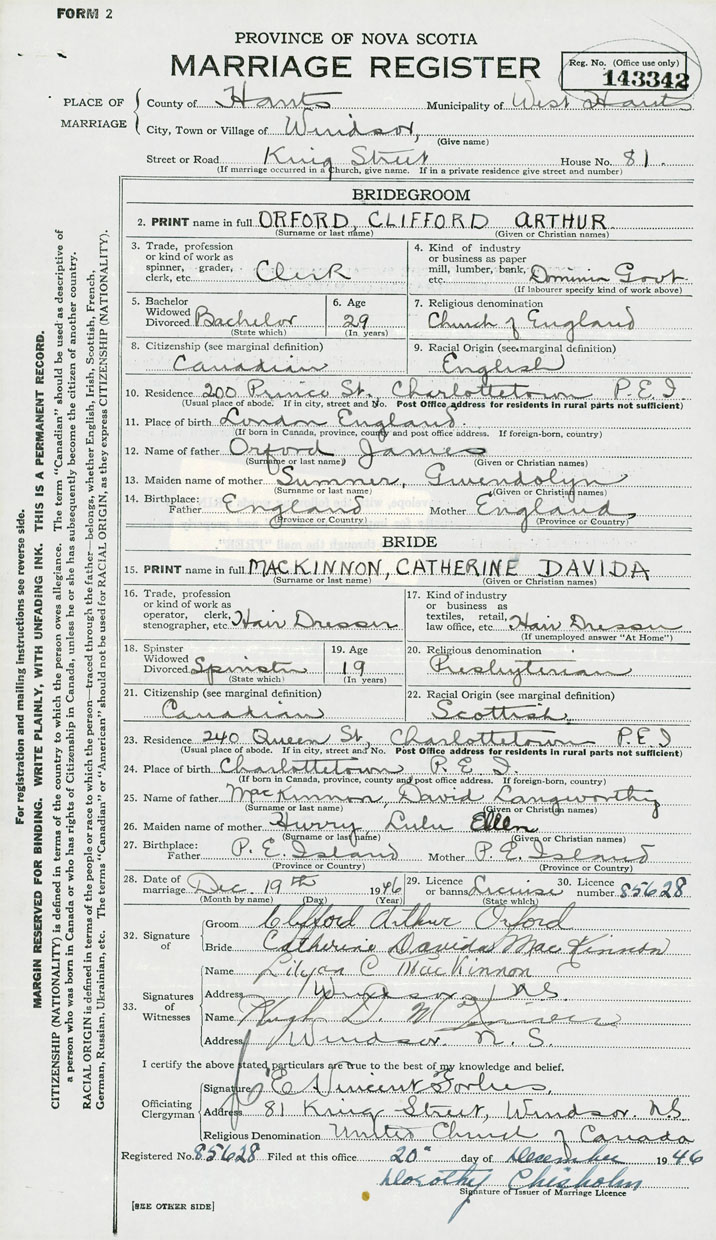 FORM 2
PROVINCE OF NOVA SCOTIA
MARRIAGE REGISTER
Reg. No. (Office use only)
143342
PLACE OF MARRIAGE
County of Hants Municipality of West Hants
City, Town or Village of Windsor,
(Give name)
Street or Road King Street House No. 81.
(If marriage occurred in a Church, give name. If in a private residence give street and number)
BRIDEGROOM
2. PRINT name in full ORFORD, CLIFFORD ARTHUR
(Surname or last name) (Given or Christian names)
3. Trade, profession or kind of work as spinner, grader, clerk, etc. Clerk
4. Kind of industry or business as paper mill, lumber, bank, etc. Dominin Govt
(If labourer specify kind of work above)
5. Bachelor Widowed Divorced Bachelor
(State which)
6. Age 29
(In years)
7. Religious denomination
Church of England
8. Citizenship (see marginal definition)
Canadian
9. Racial Origin (see marginal definition)
English
10. Residence 200 Prince St. Charlottetown P.E.I.
(Usual place of abode. If in city, street and No. Post Office address for residents in rural parts not sufficient)
11. Place of birth London England.
(If born in Canada, province, county and post office address. If foreign-born, country)
12. Name of father Orford James
(Surname or last name) (Given or Christian names)
13. Maiden name of mother Summer, Gwendolyn
(Surname or last name) (Given or Christian names)
14. Birthplace: Father England Mother England
(Province or Country) (Province or Country)
BRIDE
15. PRINT name in full MACKINNON, CATHERINE DAVIDA
(Surname or last name) (Given or Christian names)
16. Trade, profession or kind of work as operator, clerk, stenographer, etc. Hair Dresser
17. Kind of industry or business as textiles, retail, law office, etc. Hair Dresser
(If unemployed answer "At Home")
18. Spinster Widowed Divorced Spinster
(State which)
19. Age 19
(In years)
20. Religious denomination
Presbyterian
21. Citizenship (see marginal definition)
Canadian
22. Racial Origin (see marginal definition)
Scottish
23. Residence 240 Queen St, Charlottetown P.E.I
(Usual place of abode. If in city, street and No. Post Office address for residents in rural parts not sufficient)
24. Place of birth Charlottetown P.E.I.
(If born in Canada, province, county and post office address. If foreign-born, country)
25. Name of father MacKinnon, David Langworthy
(Surname or last name) (Given or Christian names)
26. Maiden name of mother Hurry, Lulu Ellen
(Surname or last name) (Given or Christian names)
27. Birthplace: Father P.E. Island Mother P.E. Island
(Province or Country) (Province or Country)
28. Date of marriage Dec. 19th 1946
(Month by name) (Day) (Year)
29. Licence or banns License
(State which)
30. Licence number 85628
32. Signature of
Groom Clifford Arthur Orford
Bride Catherine Davida MacKinnon
33. Signatures of Witnesses
Name C MacKinnon
Address Windsor, N.S.
Name Hugh D.
Address Windsor. N.S.
I certify the above stated particulars are true to the best of my knowledge and belief.
Officiating Clergyman
Signature E Vincent Forbes.
Address 81 King Street, Windsor. N.S
Religious Denomination United Church of Canada
Registered No. 85628 Filed at this office 20" day of December 1946
Dorothy Chisholm
Signature of Issuer of Marriage Licence
[SEE OTHER SIDE]
For registration and mailing instructions see reverse side.
MARGIN RESERVED FOR BINDING. WRITE PLAINLY, WITH UNFADING INK. THIS IS A PERMANENT RECORD.
CITIZENSHIP (NATIONALITY) is defined in terms of the country to which the person owes allegiance. The term "Canadian" should be used as descriptive of
a person who was born in Canada or who has rights of Citizenship in Canada, unless he or she has subsequently become the citizen of another country.
RACIAL ORIGIN is defined in terms of the people or race to which the person—traced through the father—belongs, whether English, Irish, Scottish, French,
German, Russian, Ukrainian, etc. The terms "Canadian" or "American" should not be used for RACIAL ORIGIN, as they express CITIZENSHIP (NATIONALITY).